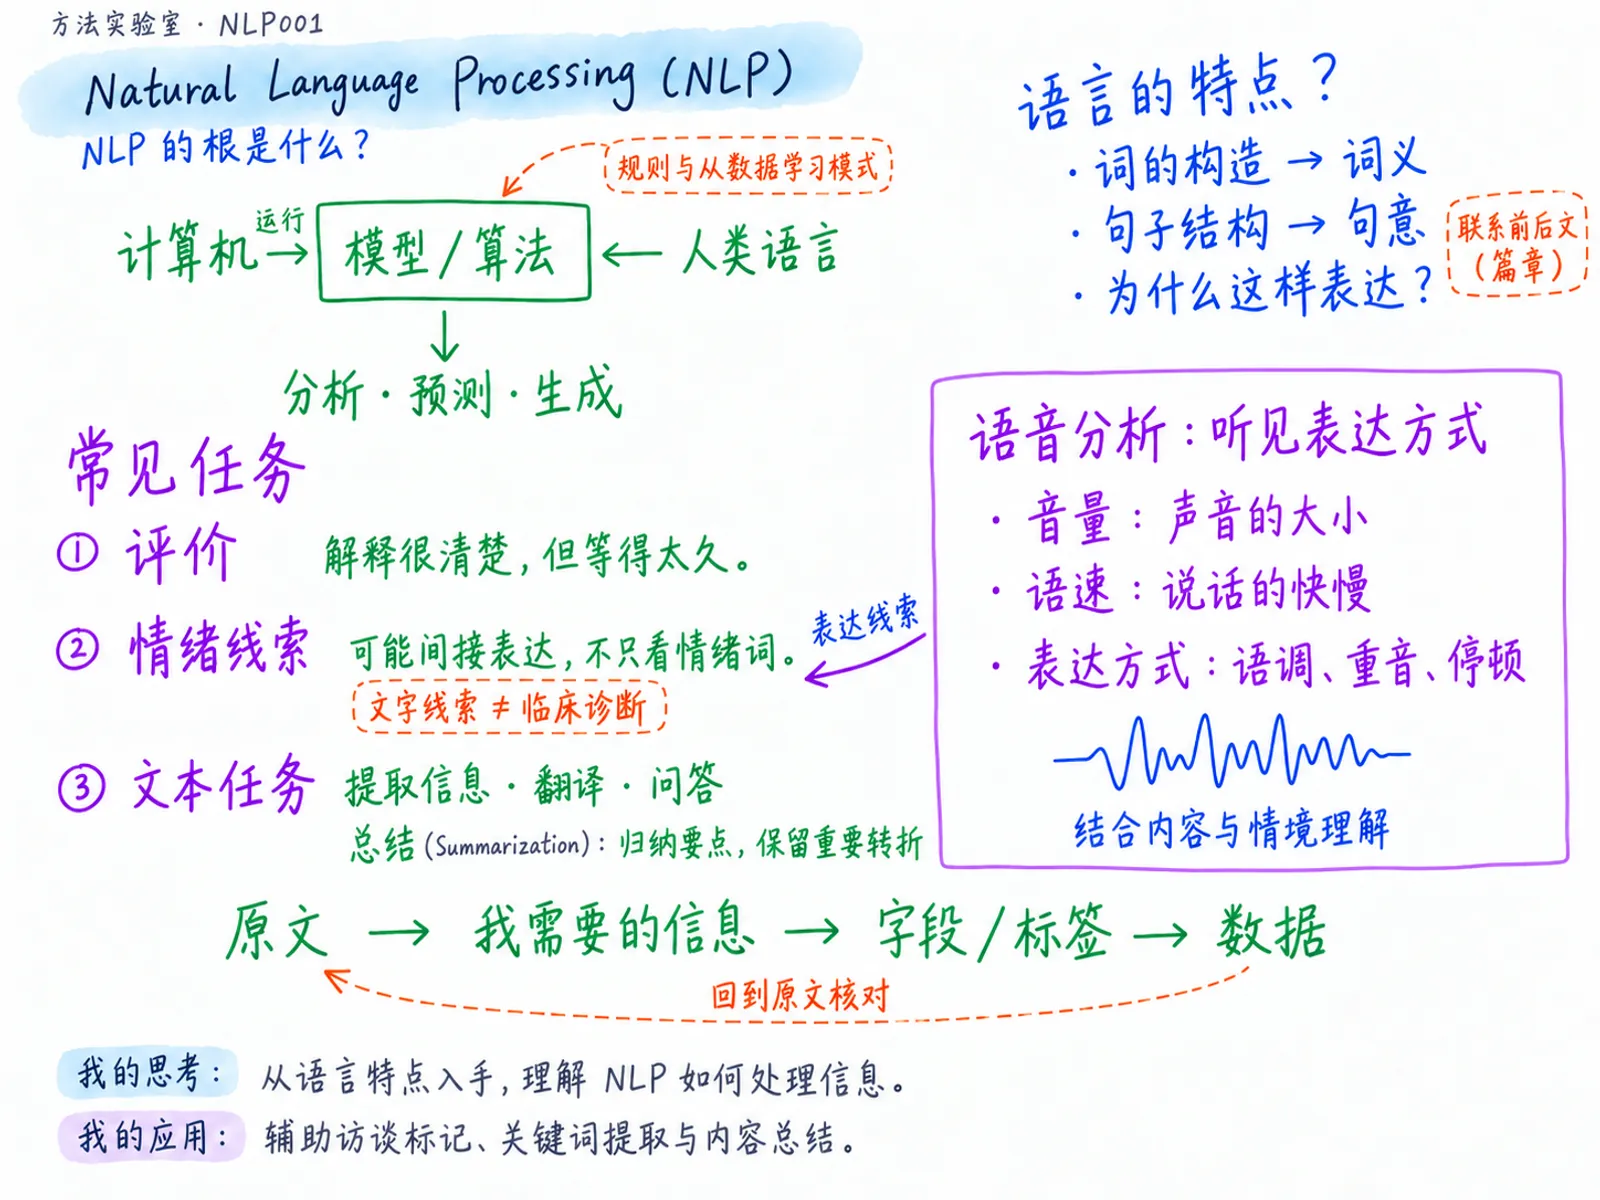 方法实验室 · NLP001
Natural Language Processing (NLP)
NLP 的根是什么？
规则与从数据学习模式
计算机 运行→ 模型/算法 ← 人类语言
↓
分析 · 预测 · 生成
语言的特点？
· 词的构造 → 词义
· 句子结构 → 句意
· 为什么这样表达？
联系前后文
（篇章）
常见任务
① 评价 解释很清楚，但等得太久。
② 情绪线索 可能间接表达，不只看情绪词。
文字线索 ≠ 临床诊断
③ 文本任务 提取信息 · 翻译 · 问答
总结 (Summarization)：归纳要点，保留重要转折
表达线索
语音分析：听见表达方式
· 音量：声音的大小
· 语速：说话的快慢
· 表达方式：语调、重音、停顿
结合内容与情境理解
原文 → 我需要的信息 → 字段/标签 → 数据
回到原文核对
我的思考： 从语言特点入手，理解 NLP 如何处理信息。
我的应用： 辅助访谈标记、关键词提取与内容总结。